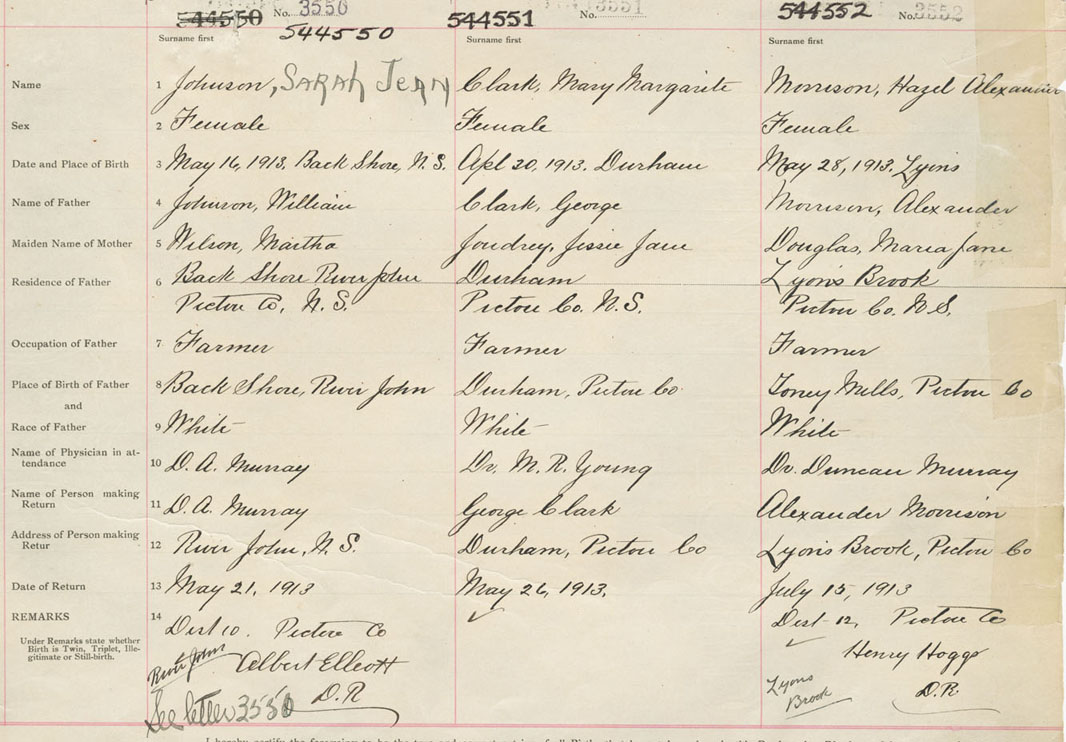 544550 No. 3550 544551 No. 3551 544552 No. 3552
544550
Surname first Surname first Surname first
Name 1 Johnson, SARAH JEAN Clark, Mary Margarite Morrison, Hazel Alexander
Sex 2 Female Female Female
Date and Place of Birth 3 May 16, 1913. Back Shore, N.S. Apl 20, 1913. Durham May 28, 1913. Lyons
Name of Father 4 Johnson, William Clark, George Morrison, Alexander
Maiden Name of Mother 5 Wilson, Martha Joudrey, Jessie Jane Douglas, Maria Jane
Residence of Father 6 Back Shore River John Durham Lyons Brook
Pictou Co, N.S. Pictou Co. N.S. Pictou Co. N.S.
Occupation of Father 7 Farmer Farmer Farmer
Place of Birth of Father 8 Back Shore, River John Durham, Pictou Co Toney Mills, Pictou Co
and
Race of Father 9 White White White
Name of Physician in at-
tendance 10 D. A. Murray Dr. M. R. Young Dr. Duncan Murray
Name of Person making
Return 11 D. A. Murray George Clark Alexander Morrison
Address of Person making
Retur 12 River John, N.S. Durham, Pictou Co Lyons Brook, Pictou Co
Date of Return 13 May 21, 1913 May 26, 1913. July 15, 1913
REMARKS 14 Dist 10. Pictou Co Dist 12, Pictou Co
Under Remarks state whether
Birth is Twin, Triplet, Ille-
gitimate or Still-birth.
River John Albert Elliott Henry Hogg
D.R Lyons Brook D.R.
See letter 3550